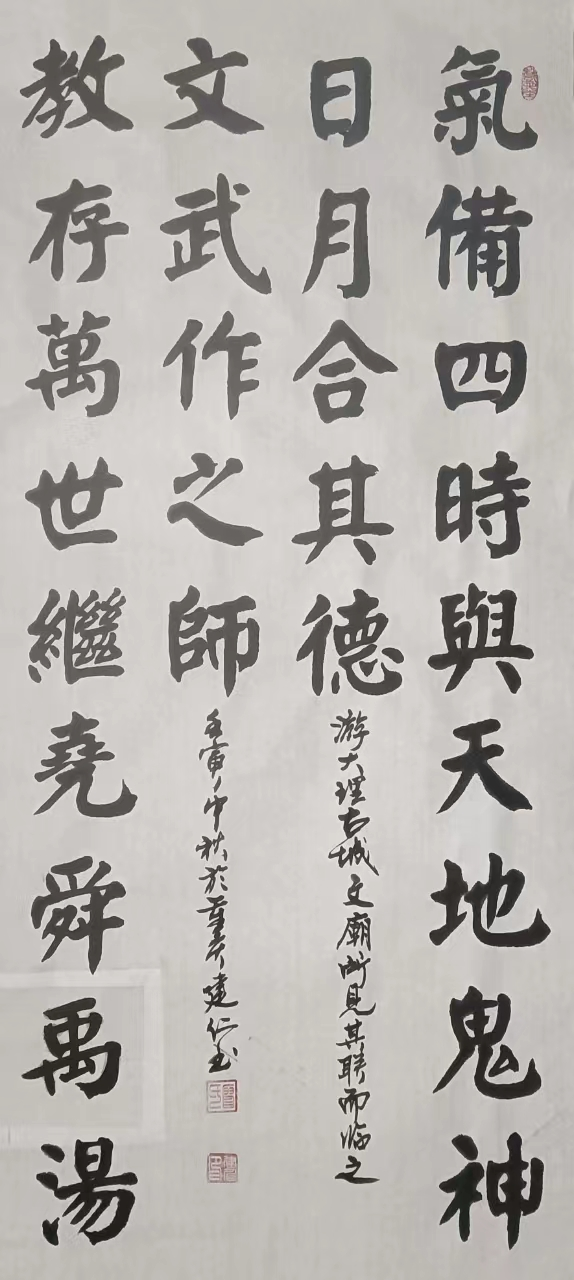 氣備四時與天地鬼神
日月合其德
游大理古城文廟所見其联而临之
教存萬世繼堯舜禹湯
文武作之師
壬寅中秋於重庆建仁书